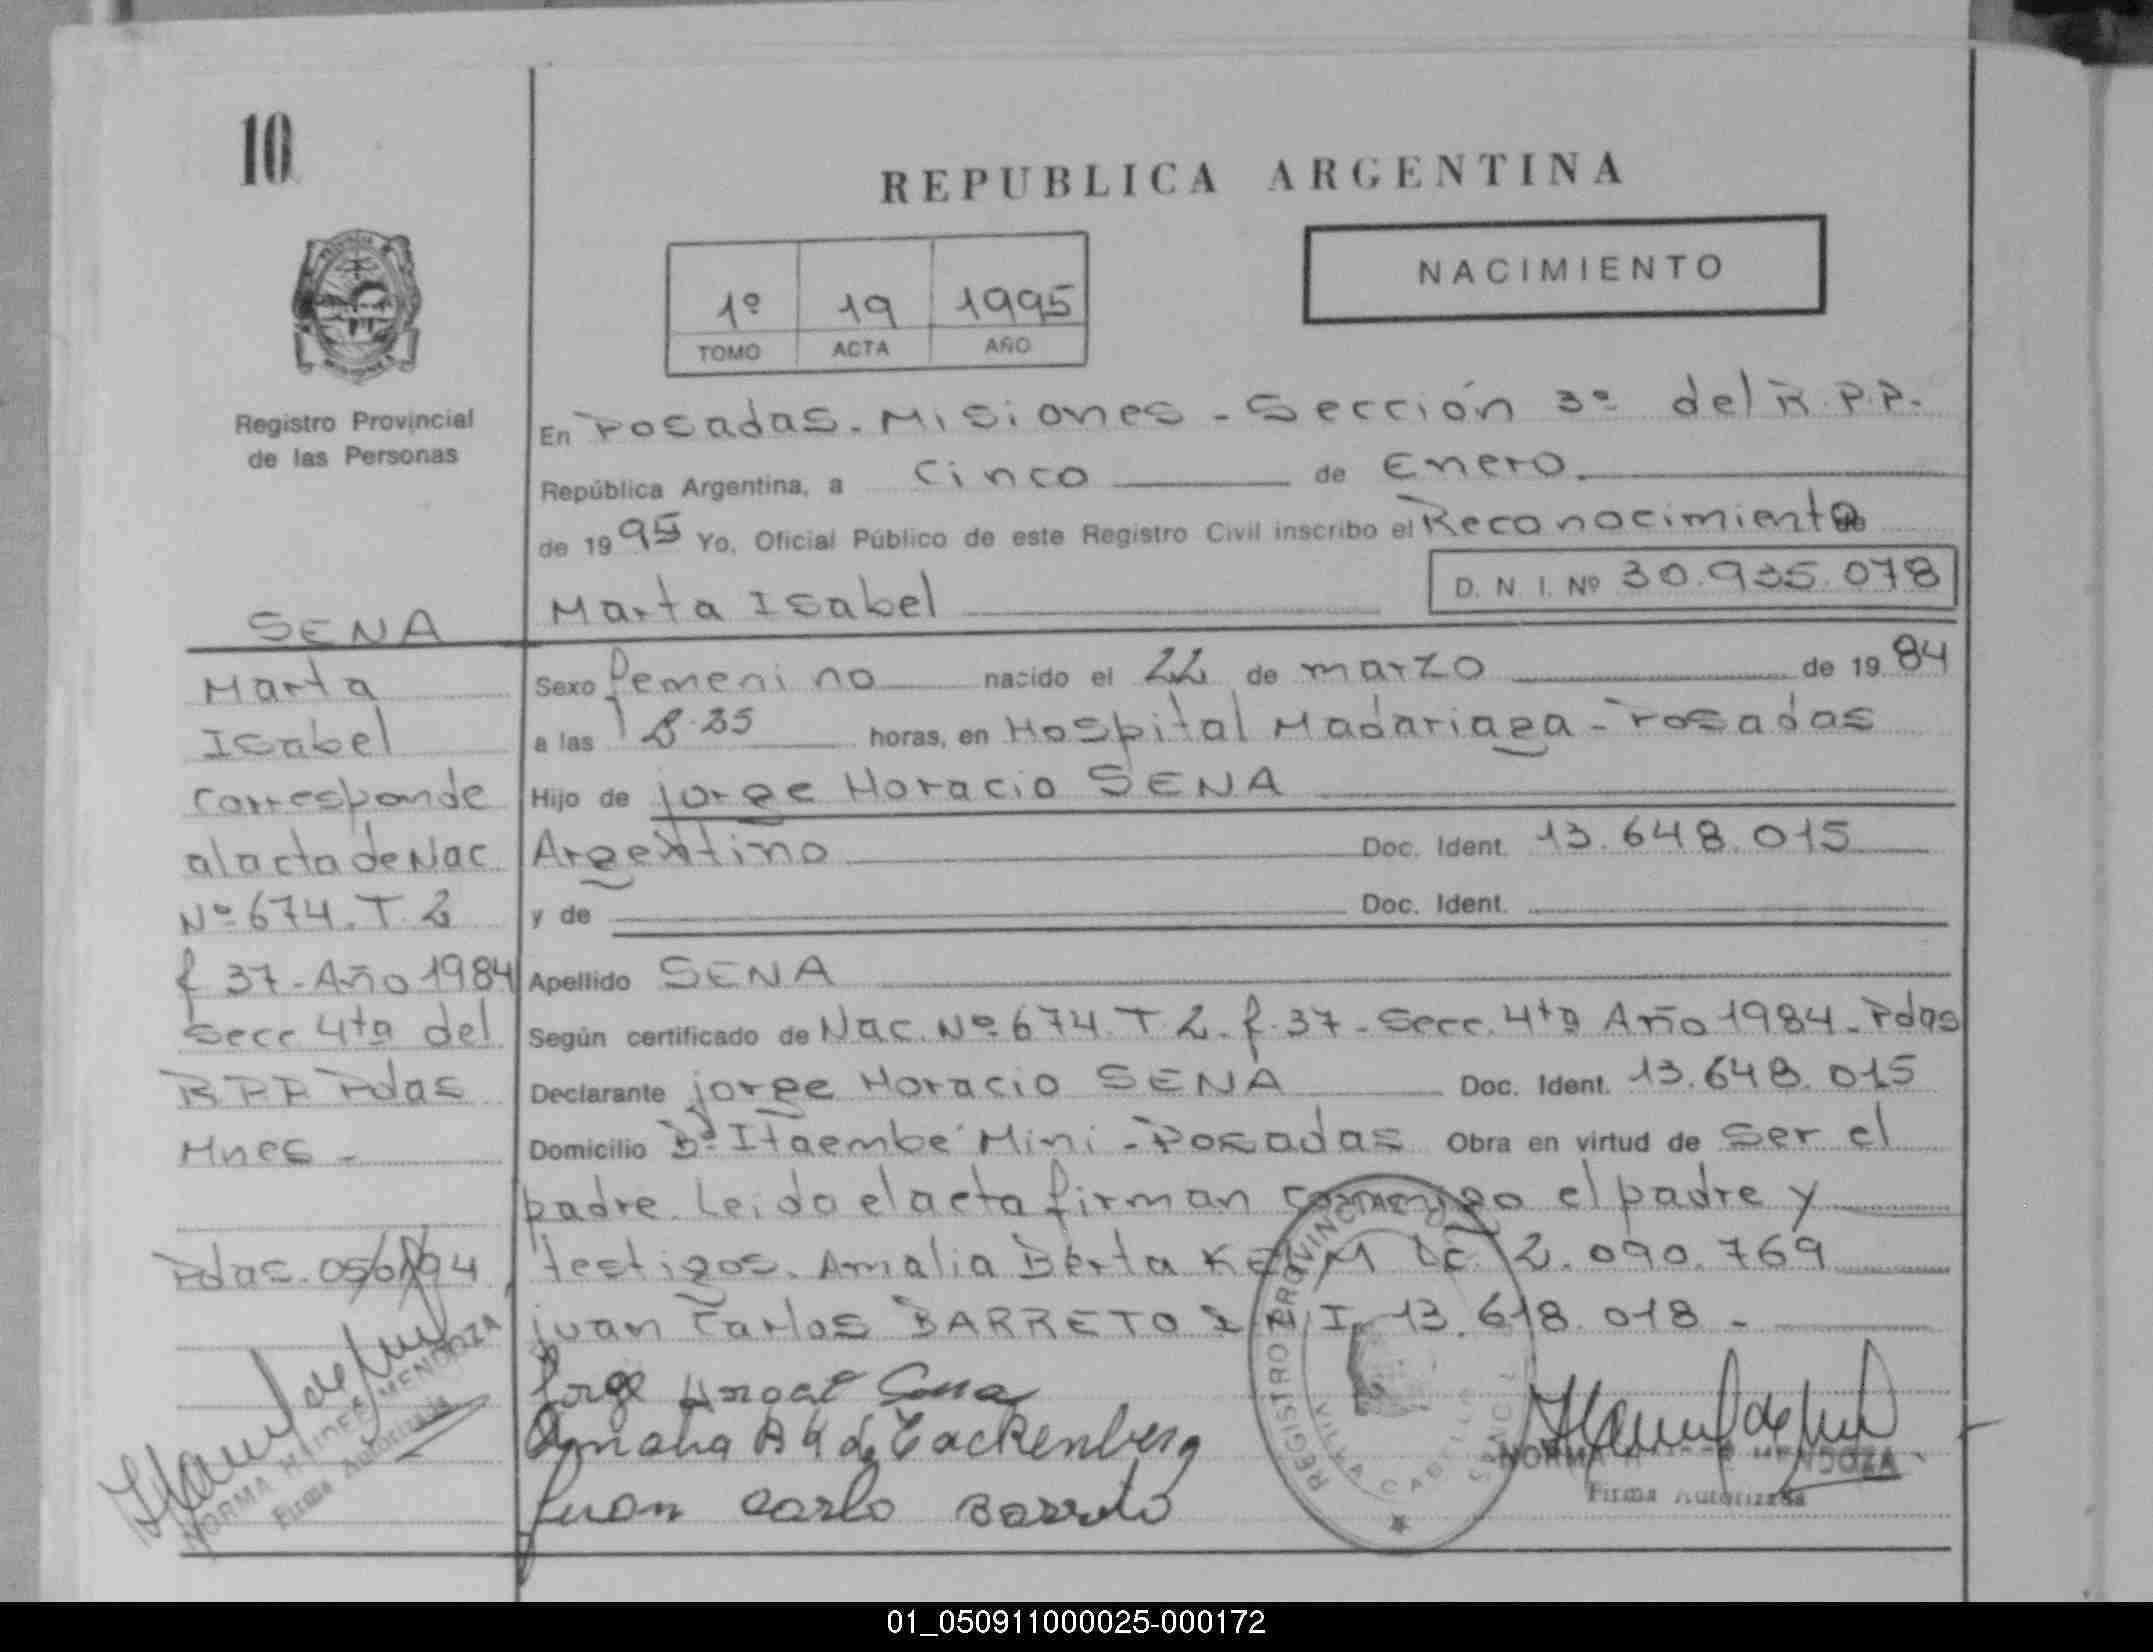 10
REPUBLICA ARGENTINA
NACIMIENTO
1º 19 1995
TOMO ACTA AÑO
Registro Provincial
de las Personas
En Posadas. Misiones - Sección 3º del R.P.P.
República Argentina, a cinco de Enero.
de 1995 Yo, Oficial Público de este Registro Civil inscribo el Reconocimiento
D. N. I. Nº 30.935.078
Marta Isabel
SENA
Marta
Isabel
corresponde
al acta de Nac
Nº 674. T. 2
f 37 - Año 1984
Secc 4ta del
R.P.P. Pdas
Mnes -
Pdas. 05/01/94
NORMA MENDOZA
Firma Autorizada
Sexo Femenino nacido el 22 de marzo de 1984
a las 8.35 horas, en Hospital Madariaga - Posadas
Hijo de jorge Horacio SENA
Argentino Doc. Ident. 13.648.015
y de Doc. Ident.
Apellido SENA
Según certificado de Nac. Nº 674. T 2. f. 37 - Secc. 4ta Año 1984 - Pdas
Declarante jorge Horacio SENA Doc. Ident. 13.648.015
Domicilio Bº Itaembé Mini - Posadas Obra en virtud de ser el
padre. Leido el acta firman conmigo el padre y
testigos. Amalia Berta LC. 2.090.769
juan Carlos BARRETO D.N.I. 13.618.018 -
Jorge Sena
Amalia B de Tackenberg
Juan Carlo Barreto
REGISTRO PROVINCIAL
NORMA MENDOZA
Firma Autorizada
01_050911000025-000172